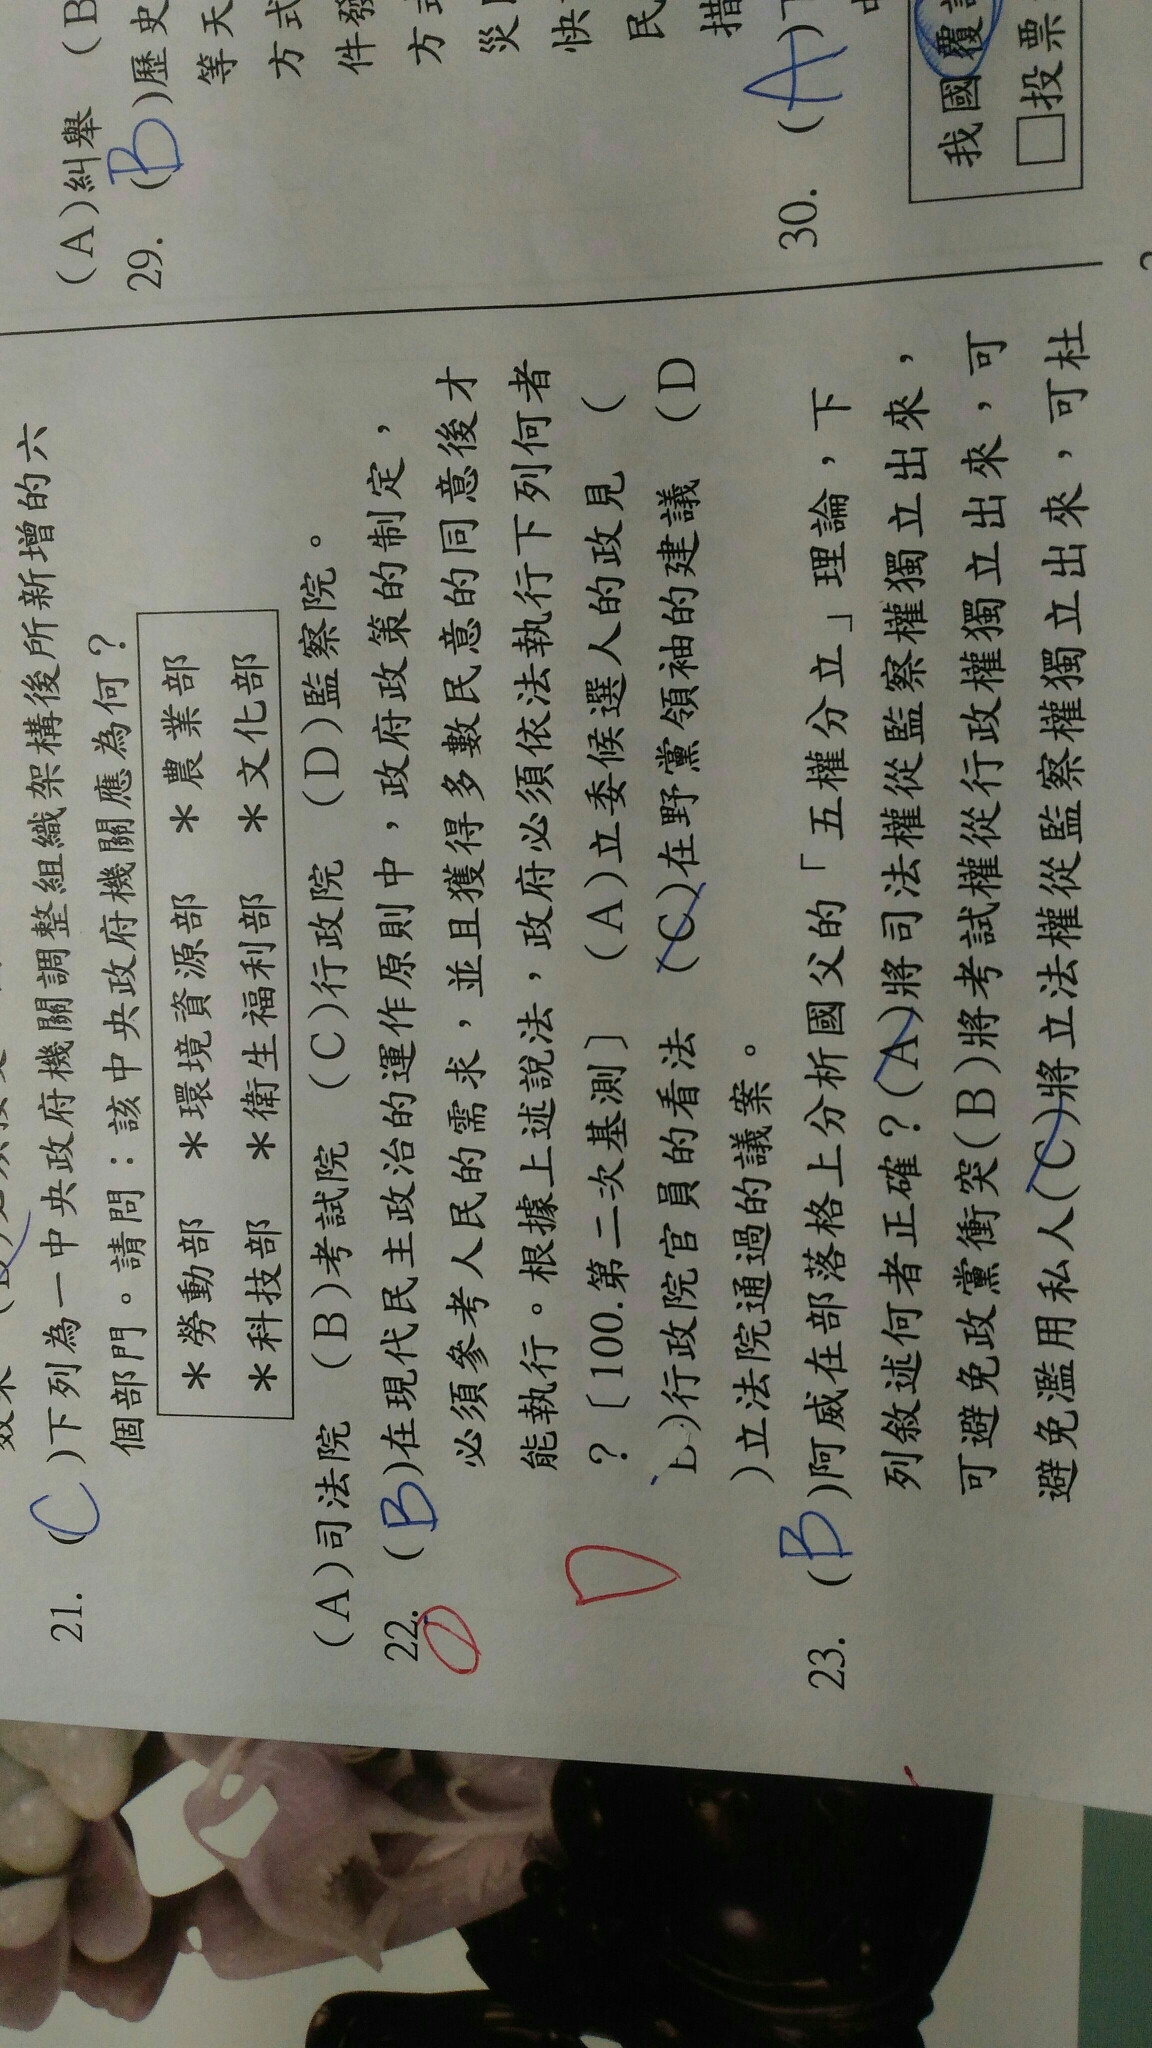 21. (C)下列為一中央政府機關調整組織架構後所新增的六
個部門。請問：該中央政府機關應為何？
＊勞動部 ＊環境資源部 ＊農業部
＊科技部 ＊衛生福利部 ＊文化部
(A)司法院 (B)考試院 (C)行政院 (D)監察院。
22. (B)在現代民主政治的運作原則中，政府政策的制定，
必須參考人民的需求，並且獲得多數民意的同意後才
能執行。根據上述說法，政府必須依法執行下列何者
？〔100.第二次基測〕 (A)立委候選人的政見 (
D
)行政院官員的看法 (C)在野黨領袖的建議 (D
)立法院通過的議案。
23. (B)阿威在部落格上分析國父的「五權分立」理論，下
列敘述何者正確？(A)將司法權從監察權獨立出來，
可避免政黨衝突(B)將考試權從行政權獨立出來，可
避免濫用私人(C)將立法權從監察權獨立出來，可杜
(A)糾舉 (B
29. (B)歷史
等天
方式
件發
方式
災
快
民
措
30. (A)
我國覆
□投票